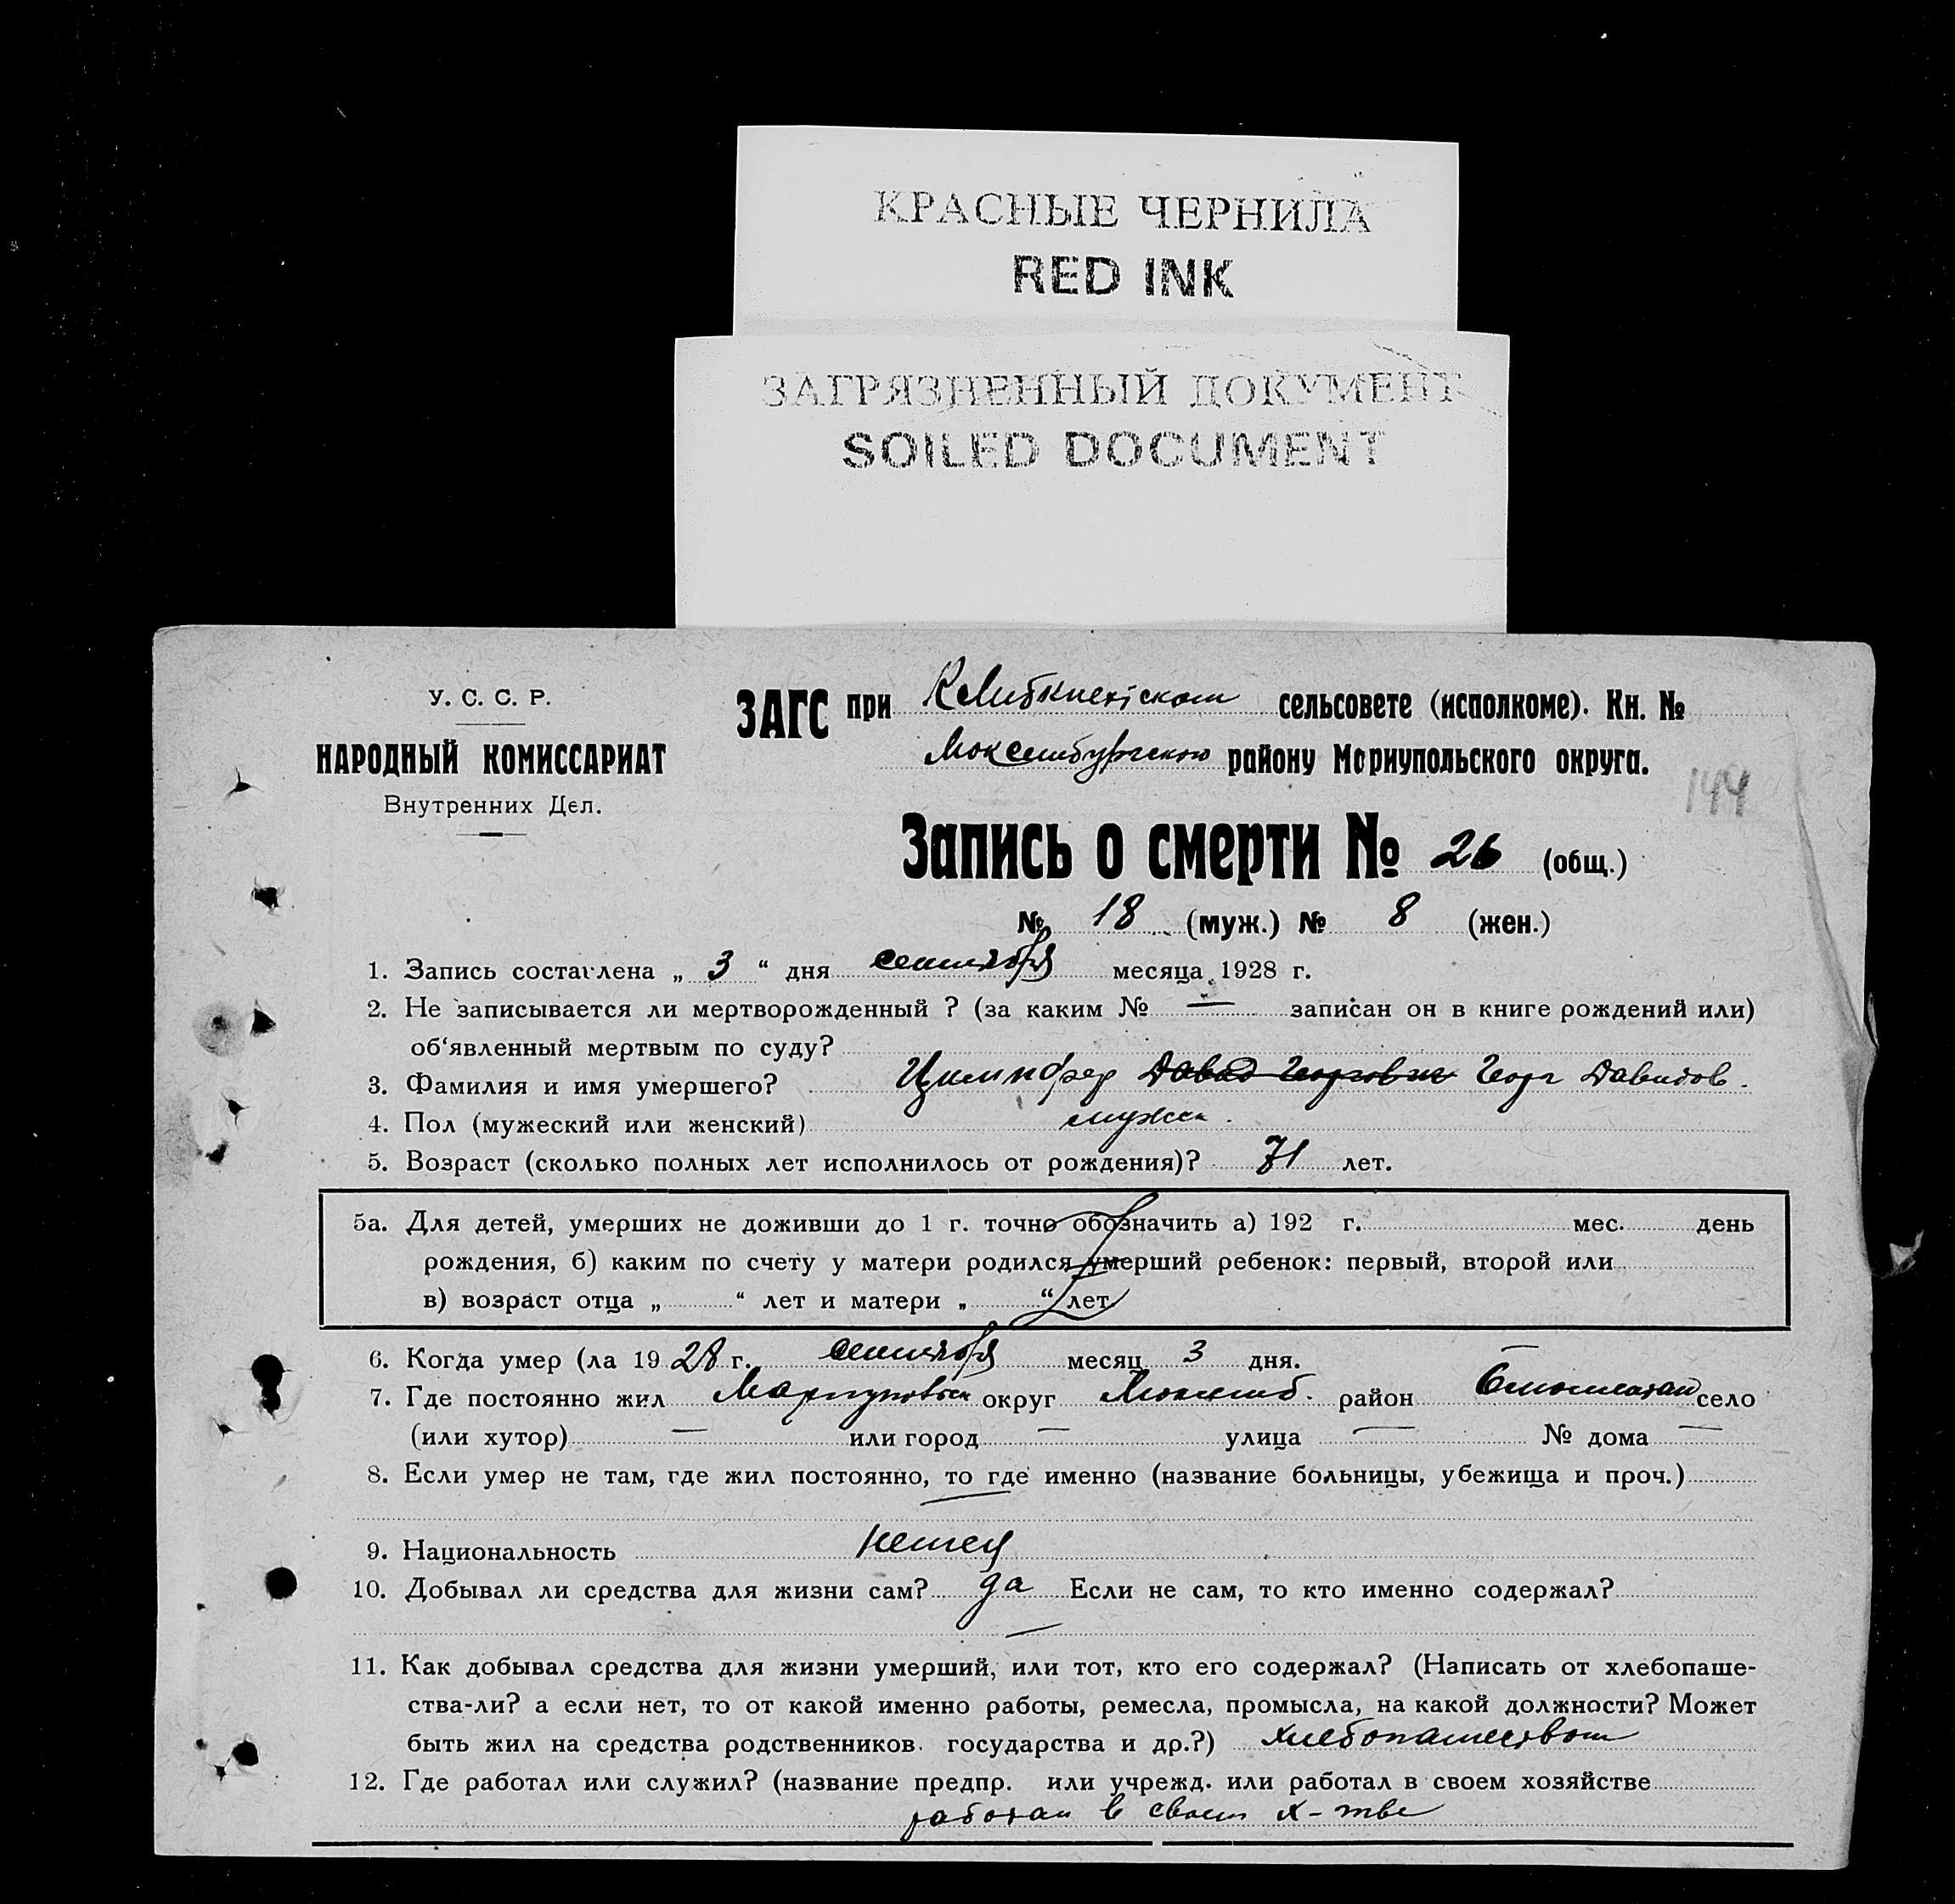 КРАСНЫЕ ЧЕРНИЛА
RED INK
ЗАГРЯЗНЕННЫЙ ДОКУМЕНТ
SOILED DOCUMENT
У. С. С. Р.
НАРОДНЫЙ КОМИССАРИАТ
Внутренних Дел.
ЗАГС при КЛибкнехтском сельсовете (исполкоме). Кн. №
району Мариупольского округа.
144
Запись о смерти № 26 (общ.)
№ 18 (муж.) № 8 (жен.)
1. Запись составлена „ 3 “ дня сентября месяца 1928 г.
2. Не записывается ли мертворожденный ? (за каким № — записан он в книге рождений или)
об‘явленный мертвым по суду?
3. Фамилия и имя умершего? Давид Георгович Георг Давидов.
4. Пол (мужеский или женский) мужск.
5. Возраст (сколько полных лет исполнилось от рождения)? 71 лет.
5а. Для детей, умерших не доживши до 1 г. точно обозначить а) 192 г. мес. день
рождения, б) каким по счету у матери родился умерший ребенок: первый, второй или
в) возраст отца „ “ лет и матери „ “ лет.
6. Когда умер (ла 19 28 г. сентября месяц 3 дня.
7. Где постоянно жил округ район село
(или хутор) — или город — улица — № дома —
8. Если умер не там, где жил постоянно, то где именно (название больницы, убежища и проч.)
—
9. Национальность немец
10. Добывал ли средства для жизни сам? да Если не сам, то кто именно содержал?
—
11. Как добывал средства для жизни умерший, или тот, кто его содержал? (Написать от хлебопаше-
ства-ли? а если нет, то от какой именно работы, ремесла, промысла, на какой должности? Может
быть жил на средства родственников. государства и др.?) хлебопашеством
12. Где работал или служил? (название предпр. или учрежд. или работал в своем хозяйстве
работал в своем х-тве